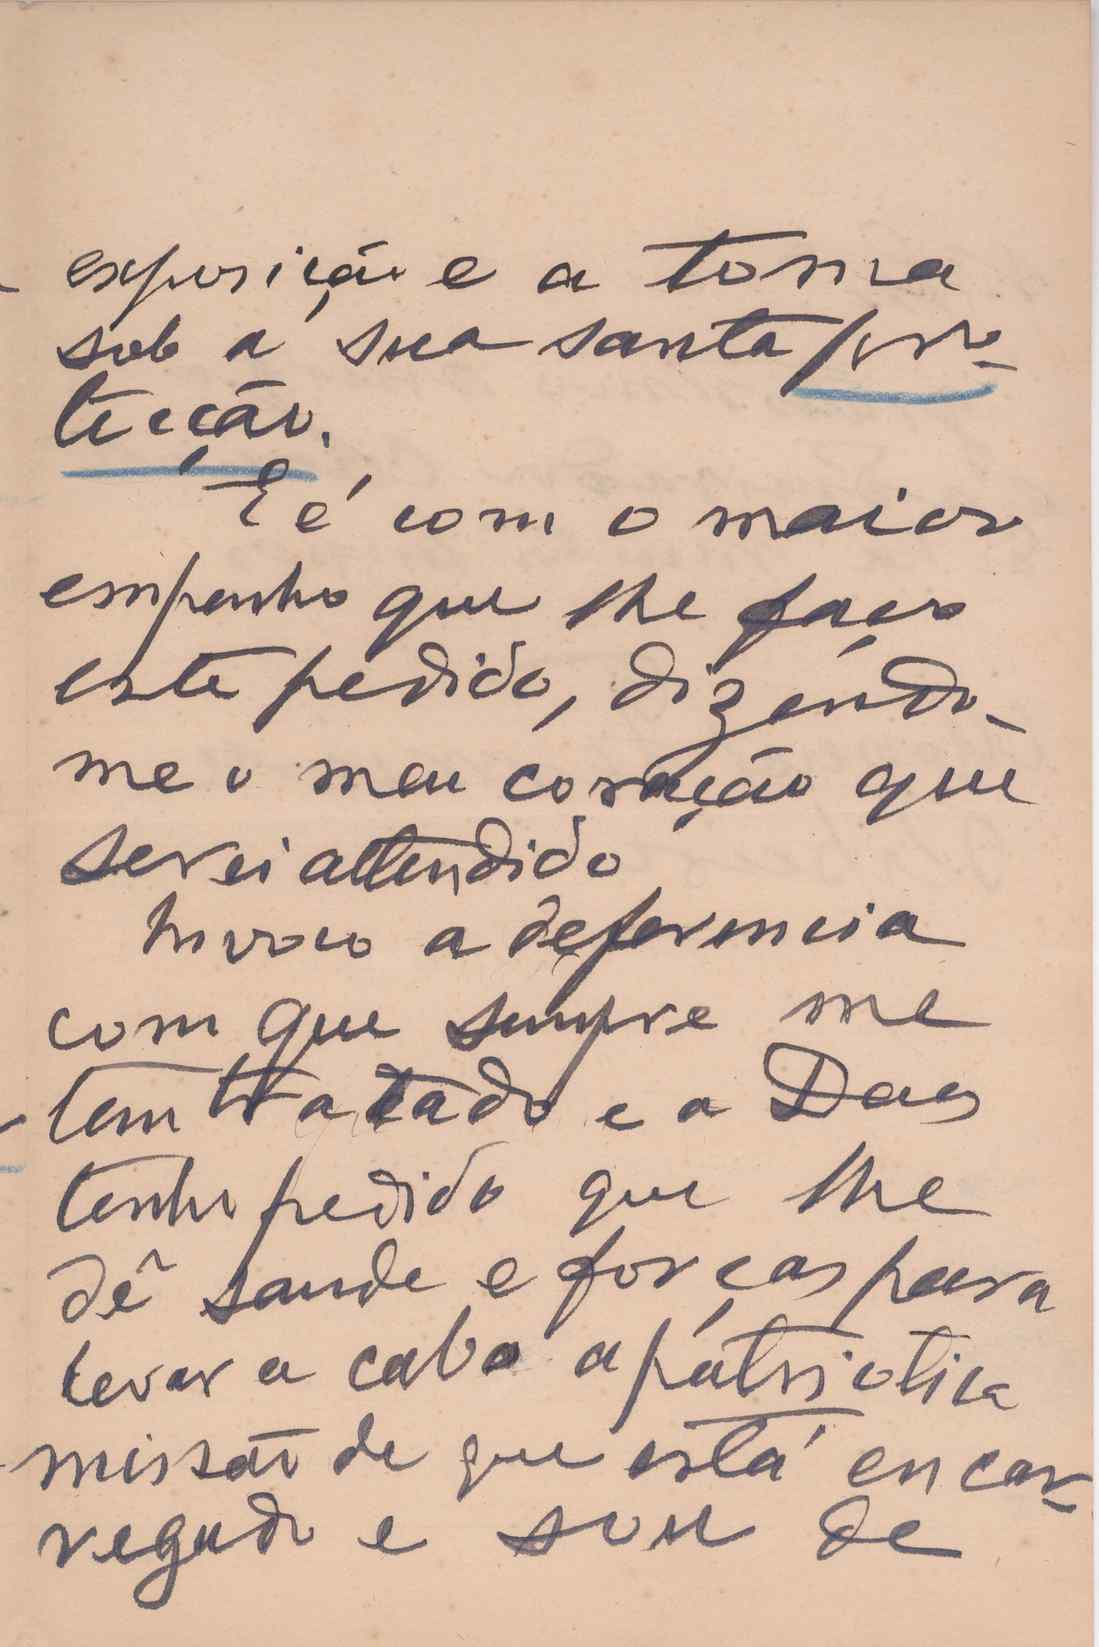 exposição e a toma
sob a sua santa pro-
tecção.
E é com o maior
empenho que lhe faço
este pedido, dizendo-
me o meu coração que
serei attendido
Invoco a deferencia
com que sempre me
tem tratado e a Deus
tenho pedido que lhe
dê saude e forças para
levar a cabo a patriotica
missão de que está encar-
regado e sou de